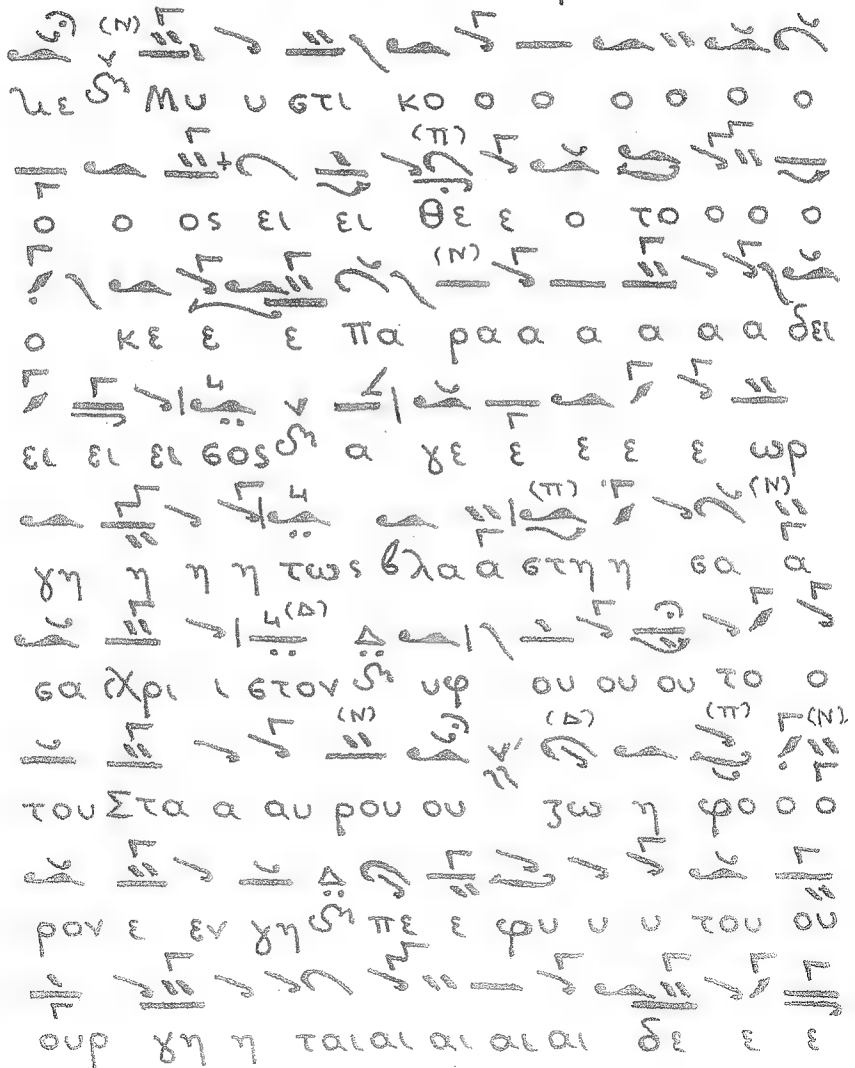 (Ν)
κε Μυ υ στι κο ο ο ο ο ο ο
(Π)
ο ο ος ει ει Θε ε ο το ο ο ο
(Ν)
ο κε ε ε πα ρα α α α α α δει
ει ει ει σος α γε ε ε ε ε ωρ
(Π) (Ν)
γη η η η τως βλα α α στη η σα α
(Δ) Δ
σα Χρι ι στον υφ ου ου ου το ο
(Ν) (Δ) (Π) (Ν)
του Στα α αυ ρου ου ζω η φο ο ο
Δ
ρον ε εν γη πε ε φυ υ υ του ου
ουρ γη η ται αι αι αι αι δε ε ε